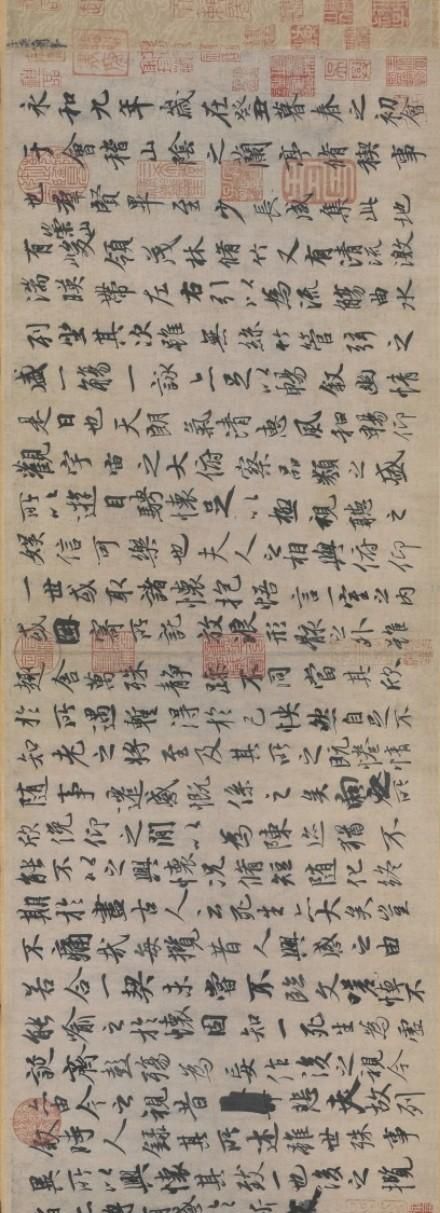 永和九年歲在癸丑暮春之初會
于會稽山陰之蘭亭脩稧事
也羣賢畢至少長咸集此地
有崇山峻領茂林脩竹又有清流激
湍暎帶左右引以為流觴曲水
列坐其次雖無絲竹管弦之
盛一觴一詠亦足以暢敘幽情
是日也天朗氣清惠風和暢仰
觀宇宙之大俯察品類之盛
所以遊目騁懷足以極視聽之
娛信可樂也夫人之相與俯仰
一世或取諸懷抱悟言一室之內
或因寄所託放浪形骸之外雖
趣舍萬殊靜躁不同當其欣
於所遇暫得於己怏然自足不
知老之將至及其所之既惓情
隨事遷感慨係之矣向之所
欣俛仰之閒以為陳迹猶不
能不以之興懷況脩短隨化終
期於盡古人云死生亦大矣豈
不痛哉每攬昔人興感之由
若合一契未嘗不臨文嗟悼不
能喻之於懷固知一死生為虛
誕齊彭殤為妄作後之視今
亦由今之視昔悲夫故列
敘時人錄其所述雖世殊事
異所以興懷其致一也後之攬